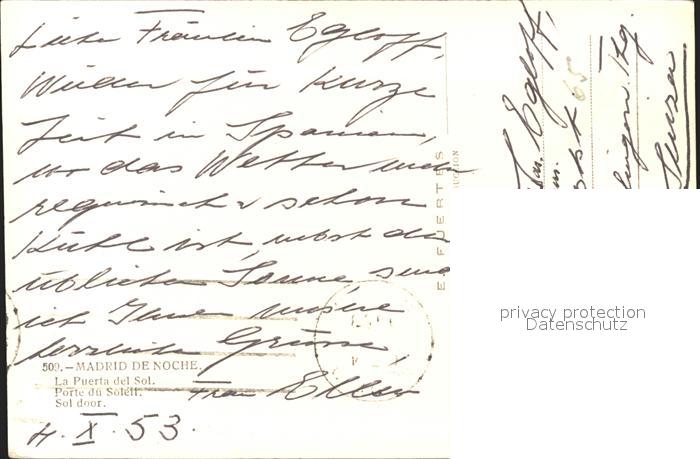 Liebe Fräulein Egloff,
Wieder für kurze
Zeit in Spanien,
wo das Wetter mehr
regnerisch & schon
kühl ist, nebst der
üblichen Sonne, sende
ich Ihnen unsere
herzliche Grüsse
Frau
4. X. 53.
509. — MADRID DE NOCHE.
La Puerta del Sol.
Porte du Soleil.
Sol door.
E. FUERTES
Egloff,
65
privacy protection
Datenschutz